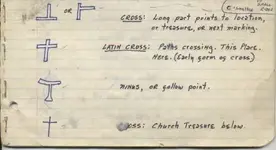 OR
CROSS: Long part points to location,
or treasure, or next marking.
LATIN CROSS: Paths crossing. This Place.
Here. (Early form of cross)
MINUS, or gallow point.
OSS: Church Treasure below.